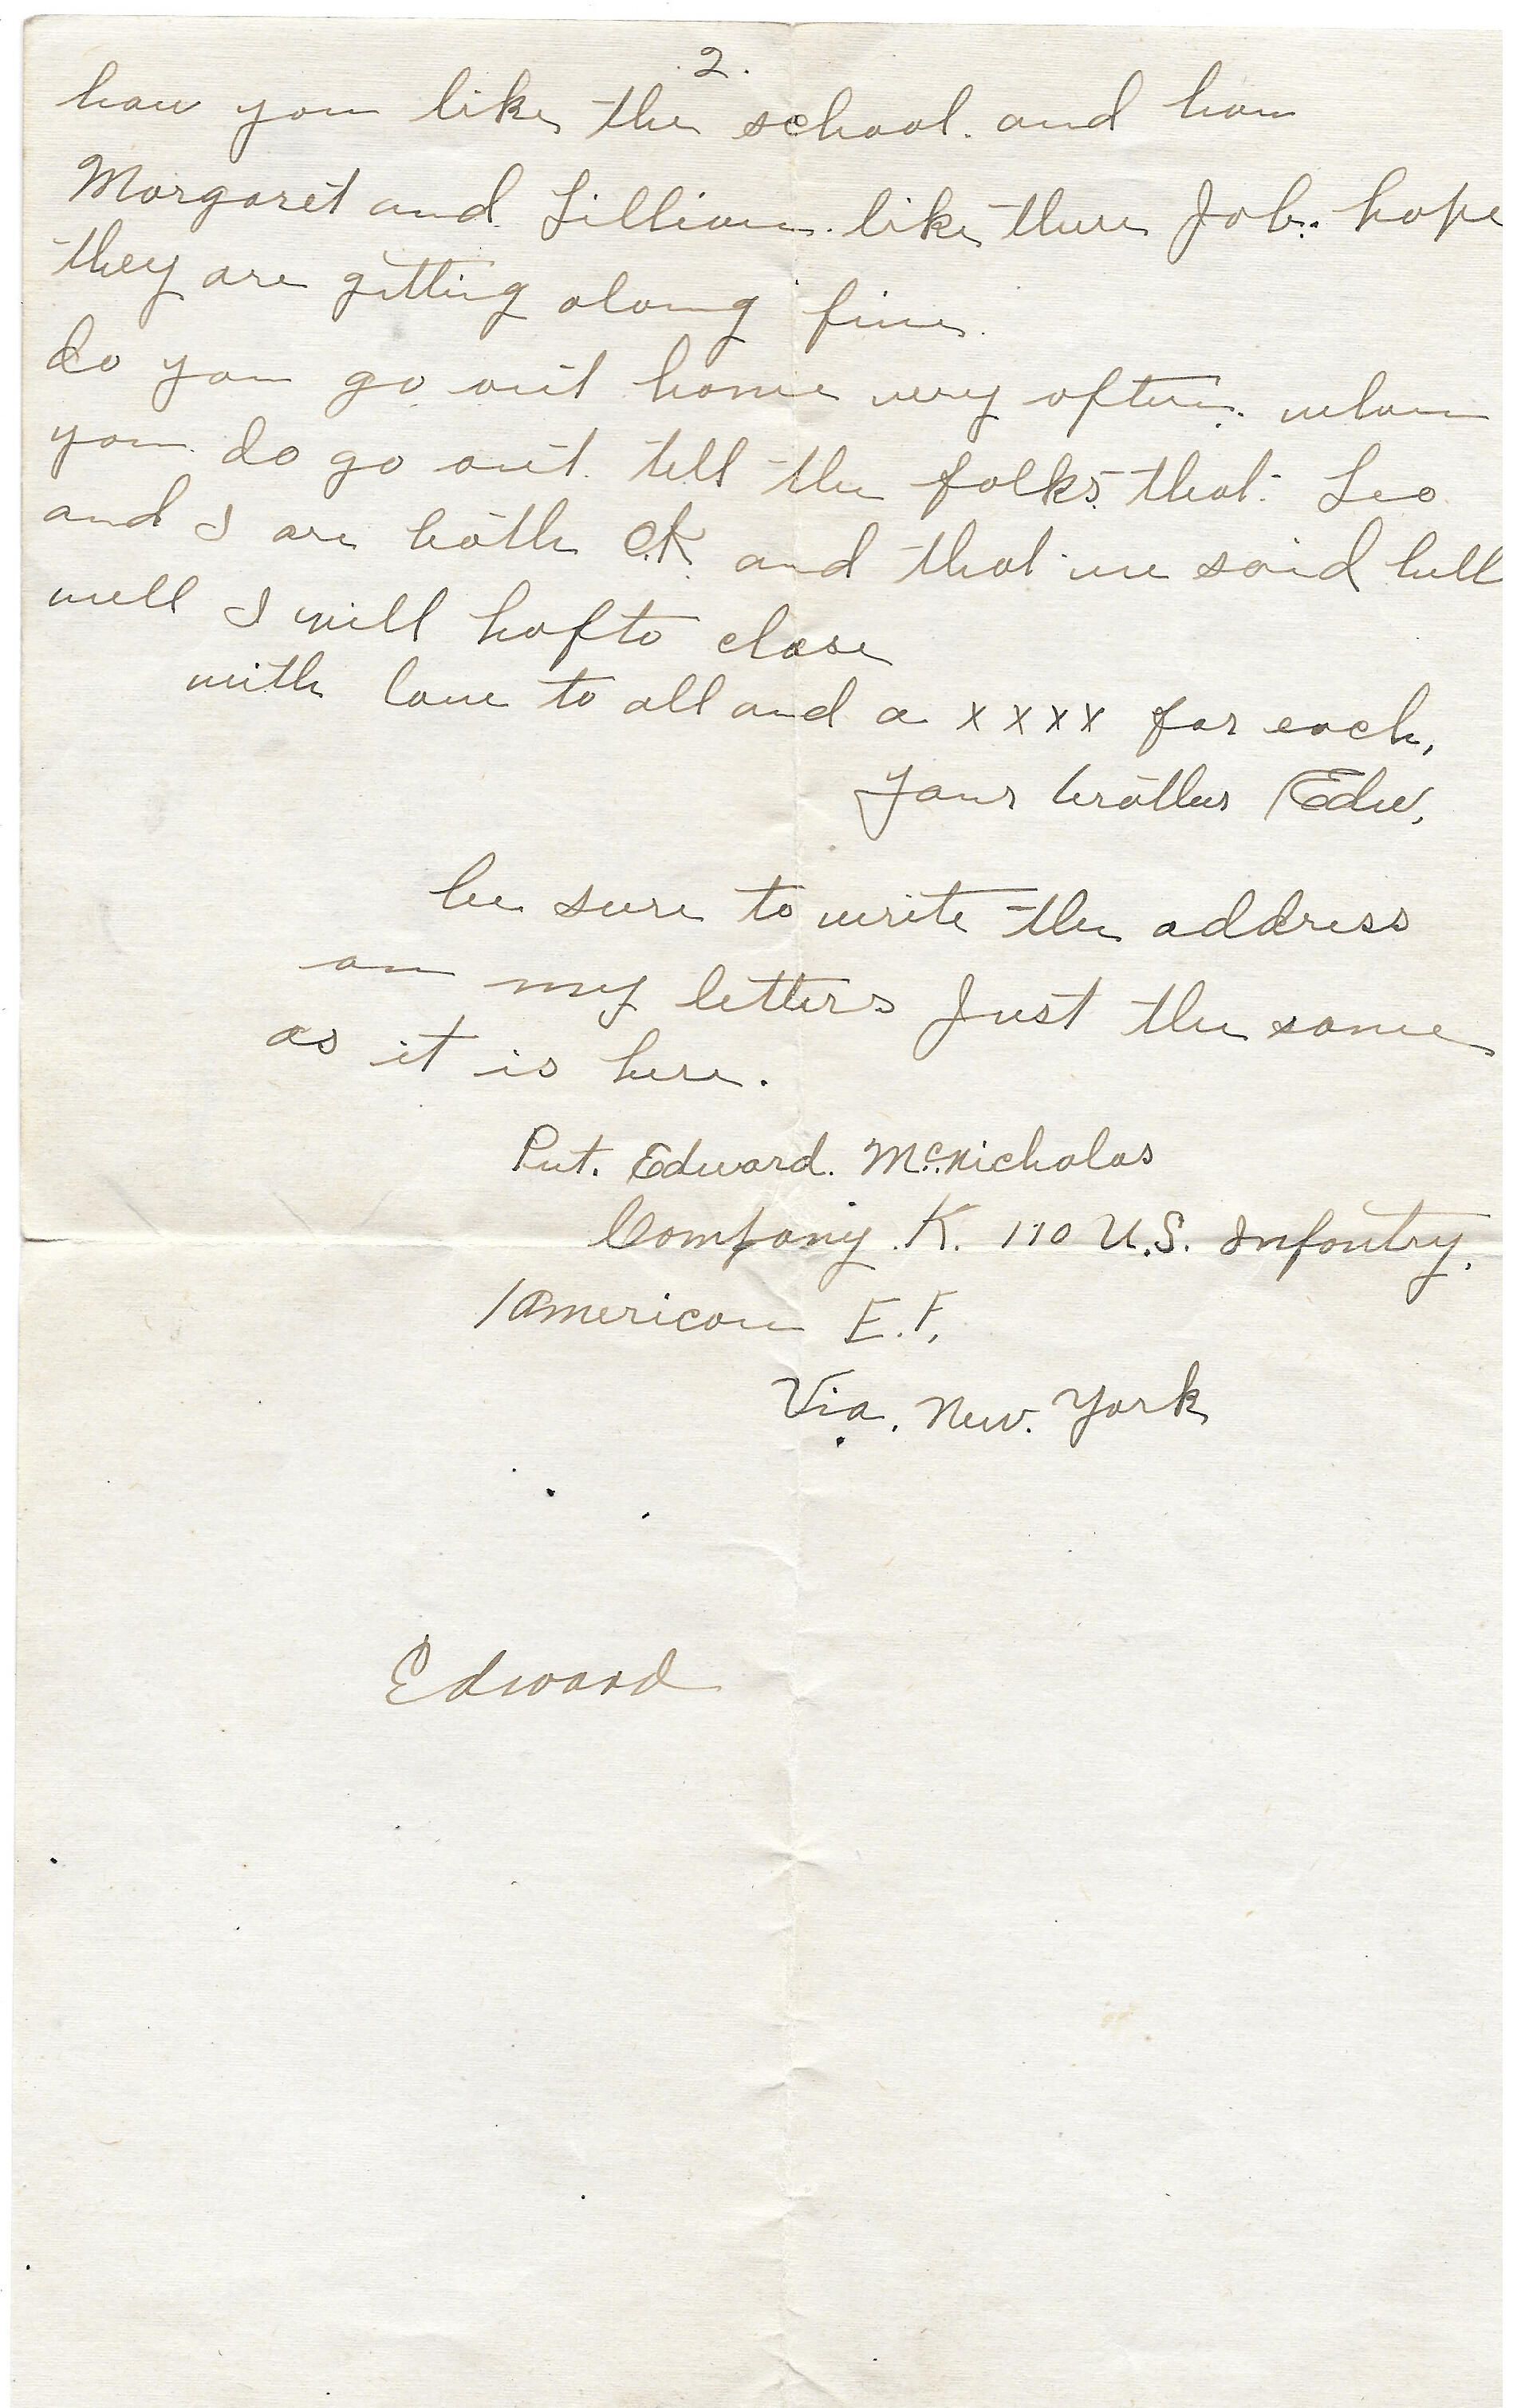 2.
how you like the school. and how
Margaret and Lillian. like there Job. hope
they are getting along fine.
do you go out home very often. when
you do go out. tell the folks that Leo
and I are both O.K. and that we said hell
well I will hafto close
with love to all and a x x x x for each,
your brother Edw,
be sure to write the address
on my letters Just the same
as it is here.
Pvt. Edward. McNicholas
Company. K. 110 U.S. Infantry.
American E.F.
Via. New. York
Edward